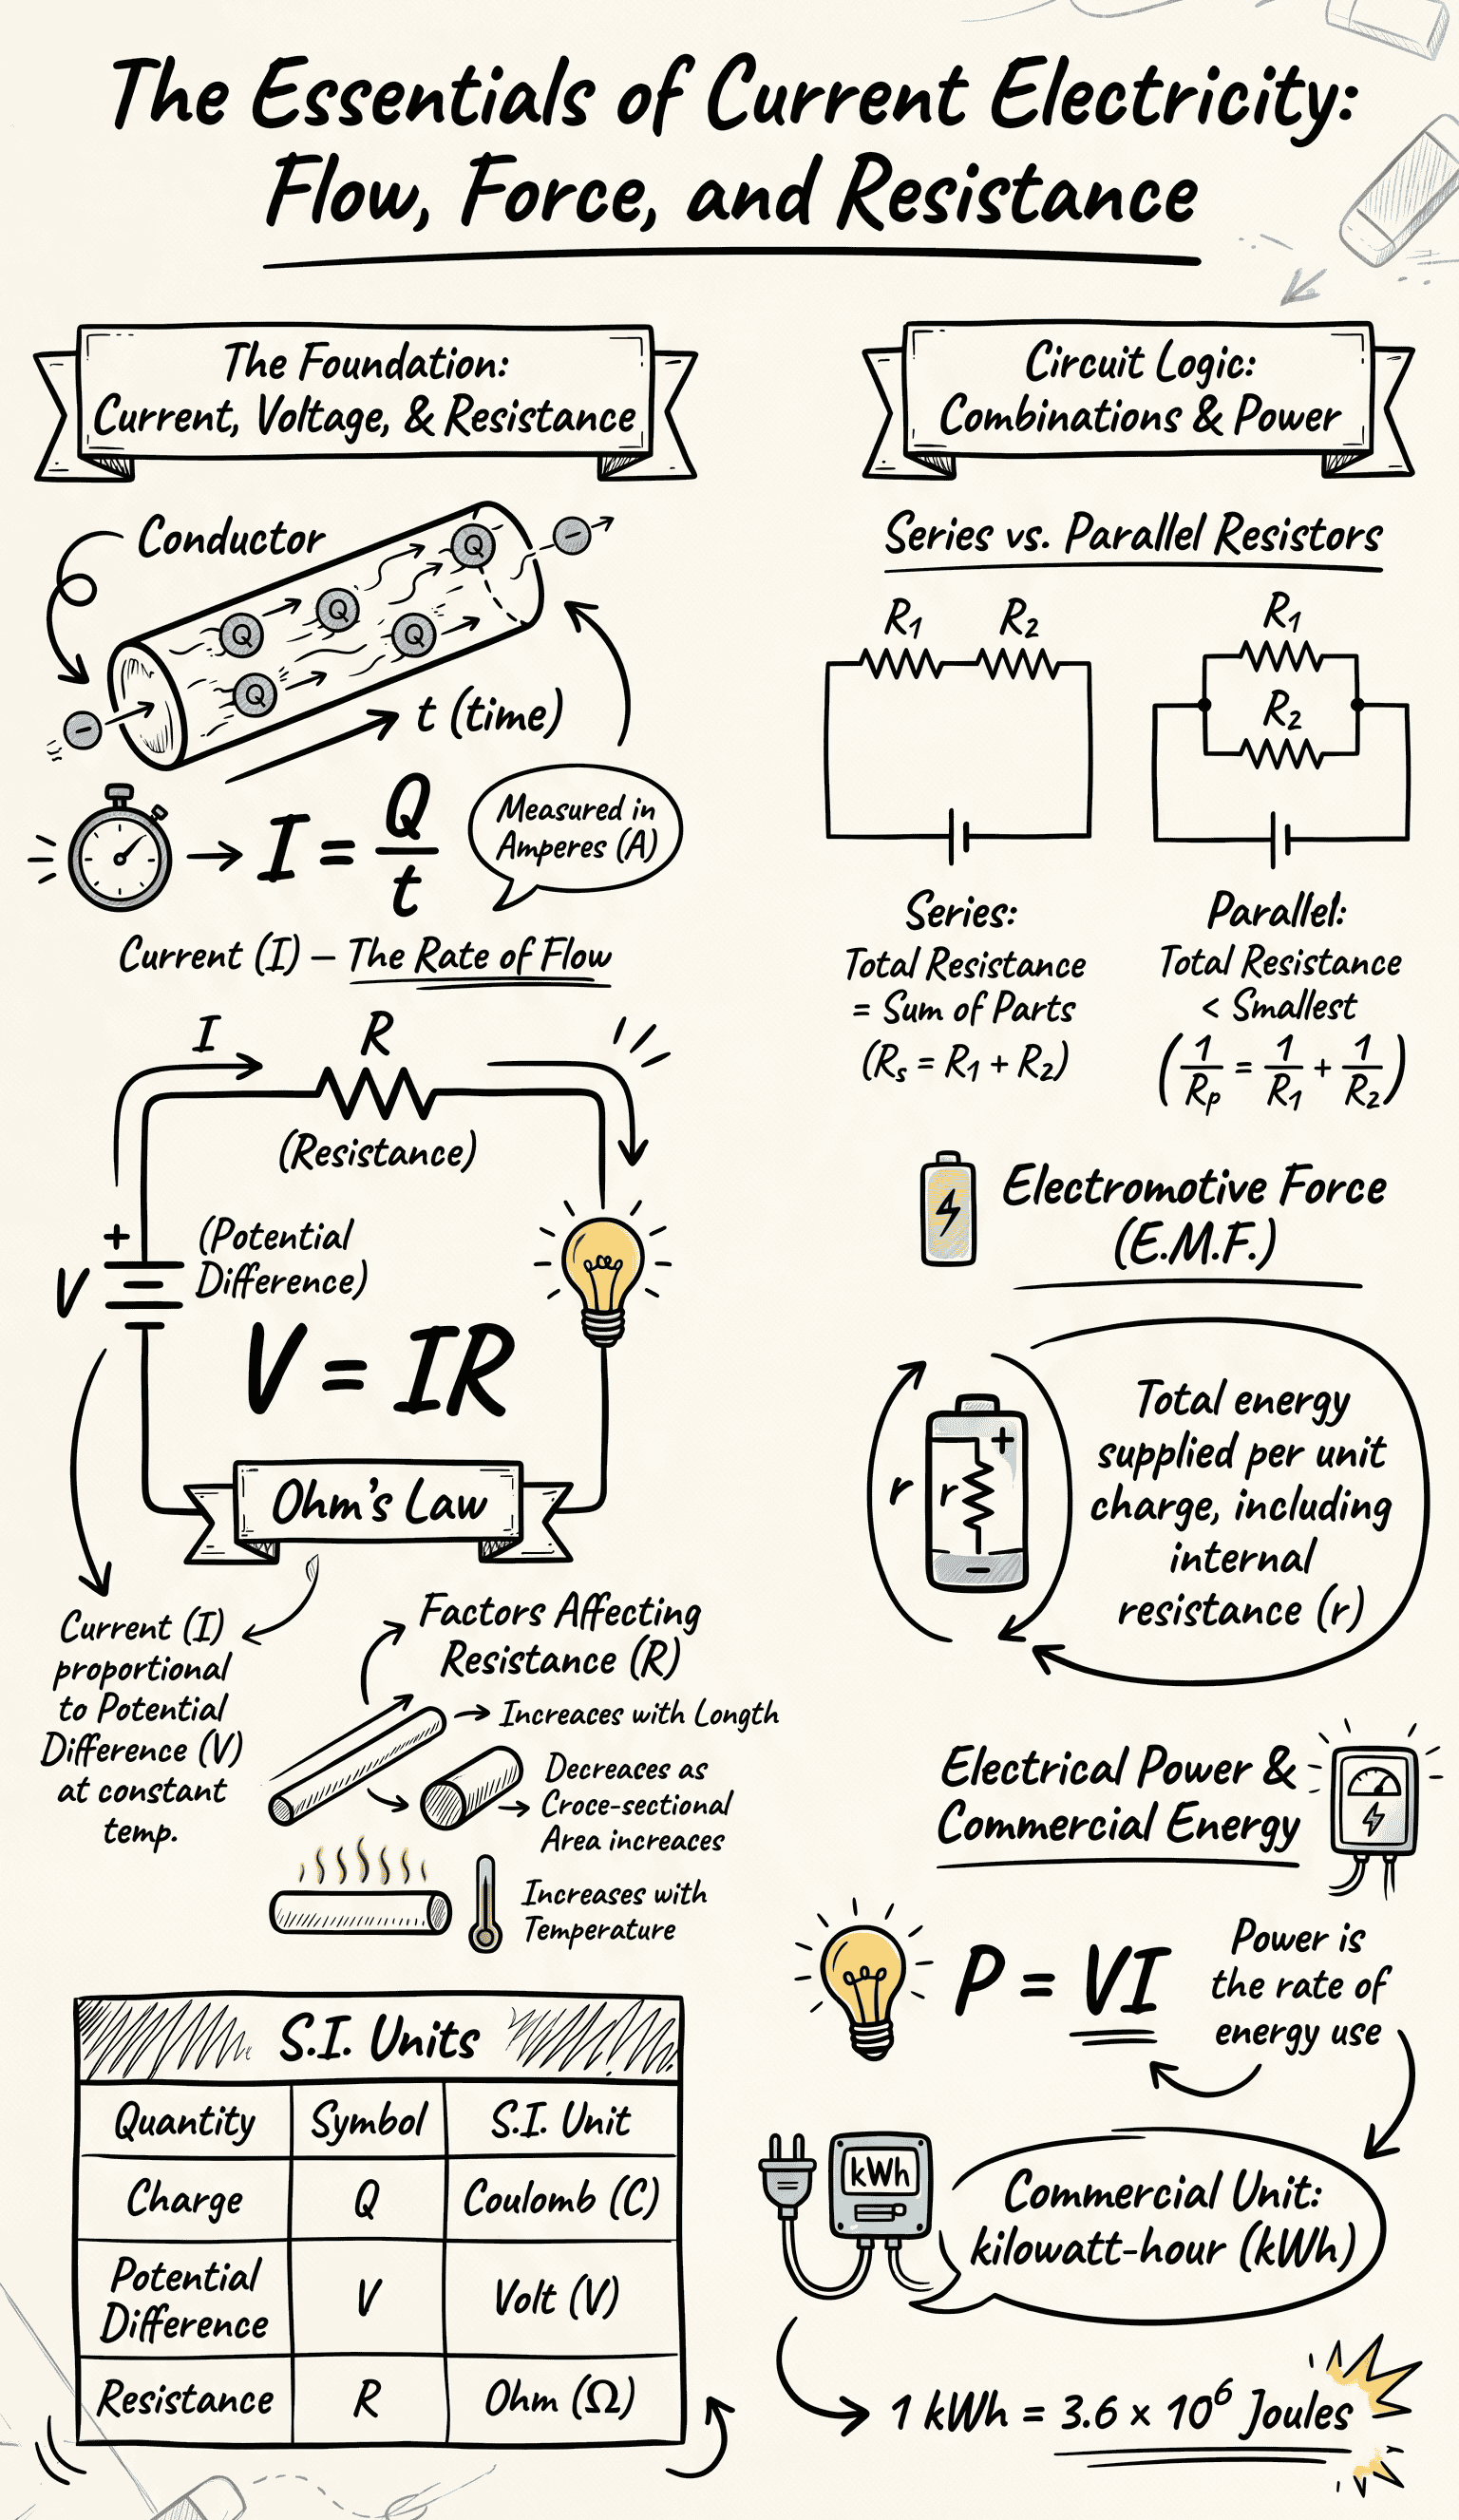 The Essentials of Current Electricity:
Flow, Force, and Resistance
The Foundation:
Current, Voltage, & Resistance
Conductor
Q
Q
Q
Q
Q
t (time)
I = Q/t
Measured in
Amperes (A)
Current (I) – The Rate of Flow
I
R
(Resistance)
+
(Potential
Difference)
V
V = IR
Ohm's Law
Current (I)
proportional
to Potential
Difference (V)
at constant
temp.
Factors Affecting
Resistance (R)
Increaces with Longth
Decreaces as
Croce-sectional
Area increaces
Increases with
Temperature
S.I. Units
Quantity Symbol S.I. Unit
Charge Q Coulomb (C)
Potential
Difference V Volt (V)
Resistance R Ohm (Ω)
Circuit Logic:
Combinations & Power
Series vs. Parallel Resistors
R₁ R₂
R₁
R₂
Series:
Total Resistance
= Sum of Parts
(Rₛ = R₁ + R₂)
Parallel:
Total Resistance
< Smallest
(1/Rₚ = 1/R₁ + 1/R₂)
Electromotive Force
(E.M.F.)
r
r
+
-
Total energy
supplied per unit
charge, including
internal
resistance (r)
Electrical Power &
Commercial Energy
P = VI
Power is
the rate of
energy use
kWh
Commercial Unit:
kilowatt-hour (kWh)
1 kWh = 3.6 × 10⁶ Joules